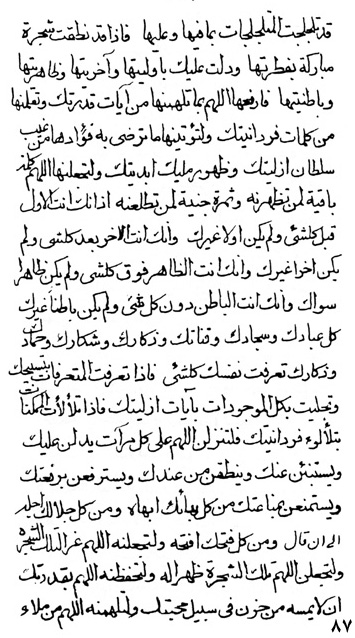 قد تلجلجت المتلجلجات بما فیها وعلیها فاذا قد نطقت شجرة
مبارکة بفطرتها ودلت علیک باولیتها وآخریتها وظاهریتها
وباطنیتها فارفعها اللهم بما تلهمنها من آیات قدرتک وتلقنها
من کلمات فردانیتک ولتؤتینها ما ترضی به فؤادها من غیب
سلطان ازلیتک وظهور ملیک ابدیتک ولتجعلنها اللهم کلمة
باقیة لمن تظهرنه وثمرة جنیة لمن تطلعنه اذ انک انت الاول
قبل کلشیٔ ولم یکن اولا غیرک وانک انت الآخر بعد کلشیٔ ولم
یکن آخرا غیرک وانک انت الظاهر فوق کلشیٔ ولم یکن ظاهرا
سواک وانک انت الباطن دون کل شیٔ ولم یکن باطنا غیرک
کل عبادک وسجادک وقناتک وذکارک وشکارک وحماد
وذکارک تعرفت نفسک کلشیٔ فاذا تعرفت المتعرفات بتسبیحک
وتجلیت بکل الموجودات بآیات ازلیتک فاذا تلألأت الممکنات
بتلألوء فردانیتک فلتنزلن اللهم علی کل مرآت یدلن علیک
ویستنبئن عنک وینطقن من عندک ویسترفعن برفعتک
ویستمنعن بمناعتک من کل بهائک ابهاه ومن کل جلالک اجله
الی ان قال ومن کل فتحک افتحه ولتجعلنه اللهم غرا لتلک الشجرة
ولتجعلن اللهم تلک الشجرة ظهرا له ولتحفظنه اللهم بقدرتک
ان لا یمسه من حزن فی سبیل محبتک ولتلهمنه اللهم من ملاء
٨٧